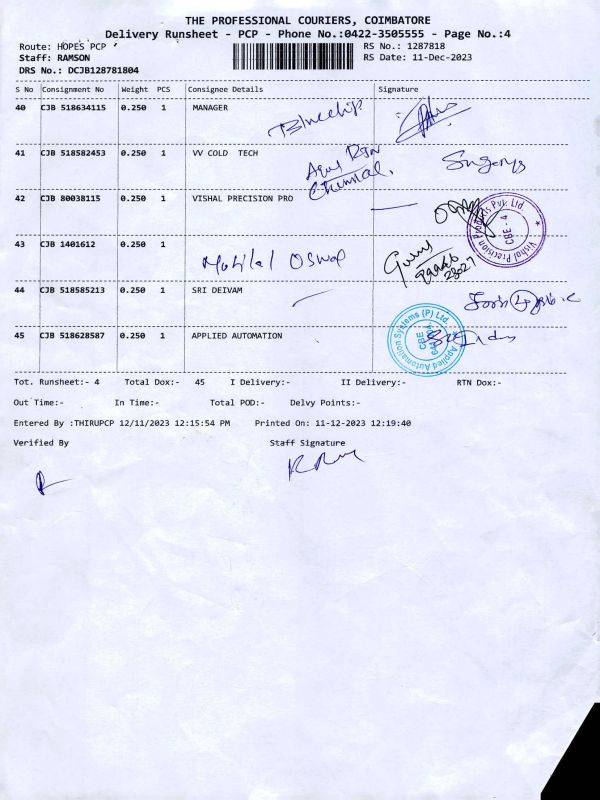 THE PROFESSIONAL COURIERS, COIMBATORE
Delivery Runsheet - PCP - Phone No.:0422-3505555 - Page No.:4
Route: HOPES PCP
RS No.: 1287818
Staff: RAMSON
RS Date: 11-Dec-2023
DRS No.: DCJB128781804
S No Consignment No Weight PCS Consignee Details Signature
40 CJB 518634115 0.250 1 MANAGER
Bluechip
41 CJB 518582453 0.250 1 VV COLD TECH
Chemical.
42 CJB 80038115 0.250 1 VISHAL PRECISION PRO
Vishal Precision Products Pvt. Ltd
CBE - 4
43 CJB 1401612 0.250 1
Motilal Oswal
28027
44 CJB 518585213 0.250 1 SRI DEIVAM
45 CJB 518628587 0.250 1 APPLIED AUTOMATION
Applied Automation Systems (P) Ltd.
CBE
Tot. Runsheet:- 4 Total Dox:- 45 I Delivery:- II Delivery:- RTN Dox:-
Out Time:- In Time:- Total POD:- Delvy Points:-
Entered By :THIRUPCP 12/11/2023 12:15:54 PM Printed On: 11-12-2023 12:19:40
Verified By Staff Signature